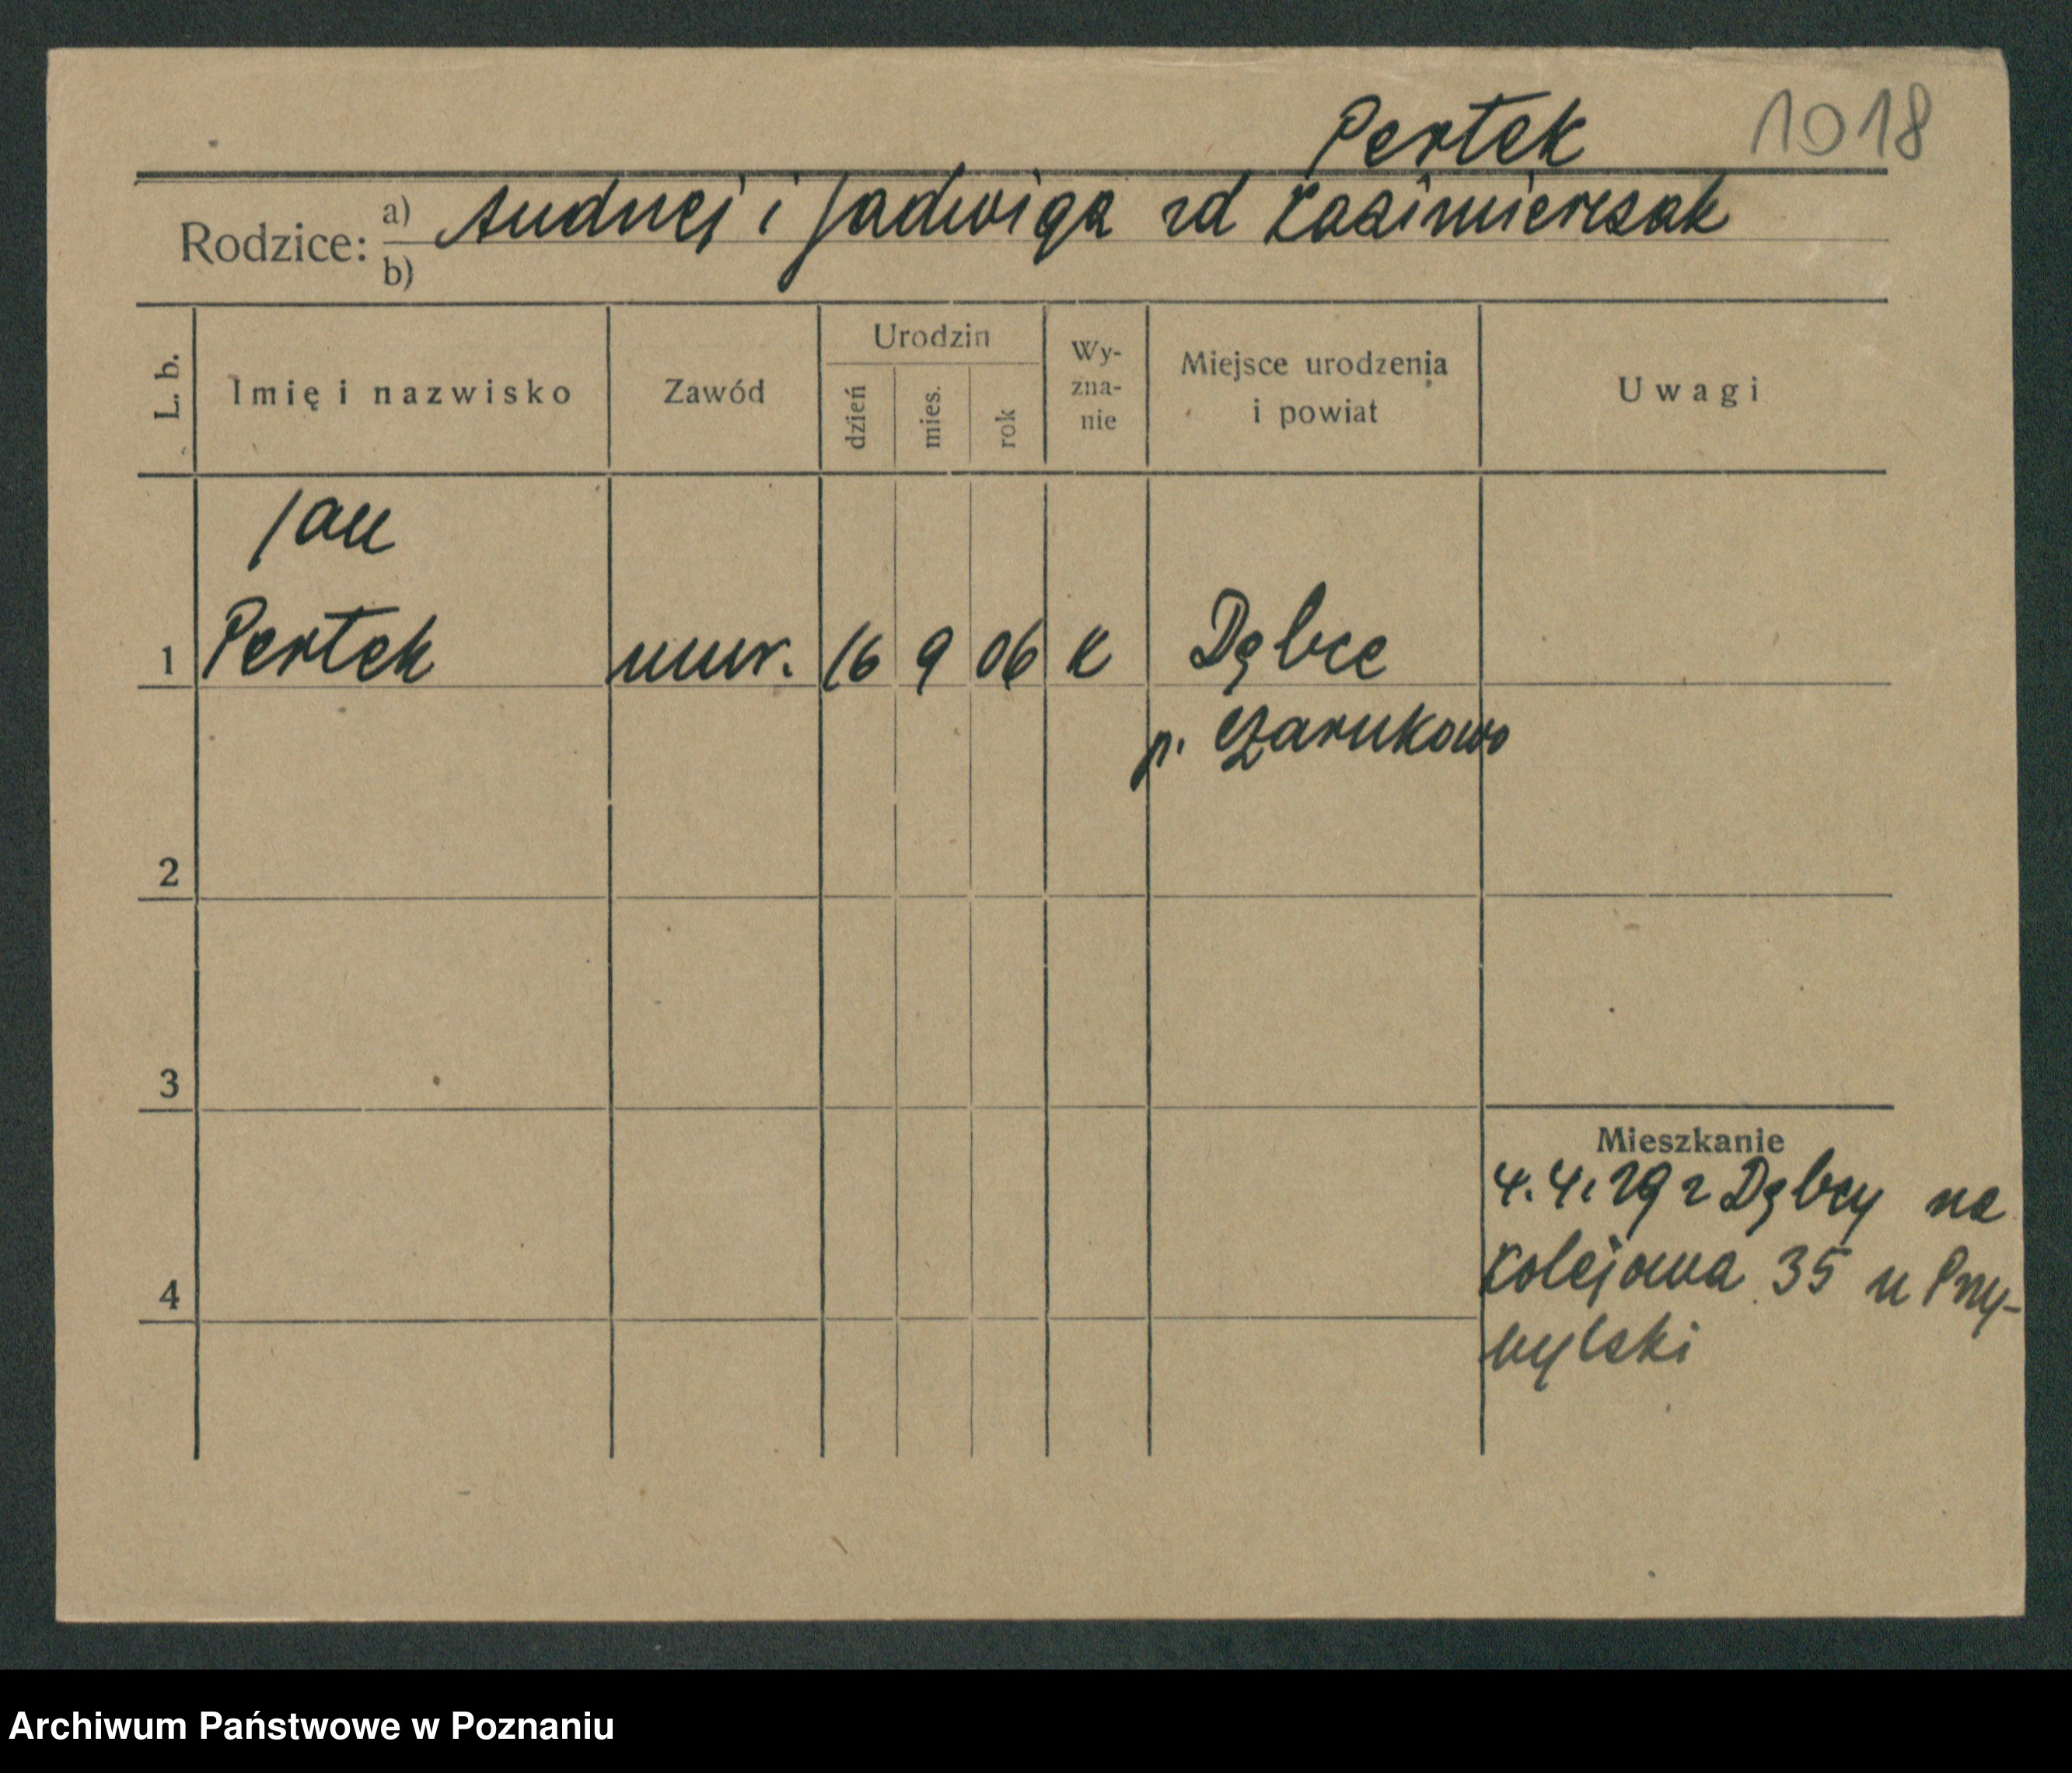 Pertek 1018
Rodzice: a) Andrzej i Jadwiga zd Kaźmierczak
b)
L. b. Imię i nazwisko Zawód Urodzin dzień mies. rok Wy-zna-nie Miejsce urodzenia i powiat Uwagi
Jan
1 Pertek mur. 16 9 06 k Dębce
p. Czarnkowo
2
3
Mieszkanie
4.4.29 z Dębcy na
4 Kolejowa 35 u Przy-
bylski
Archiwum Państwowe w Poznaniu